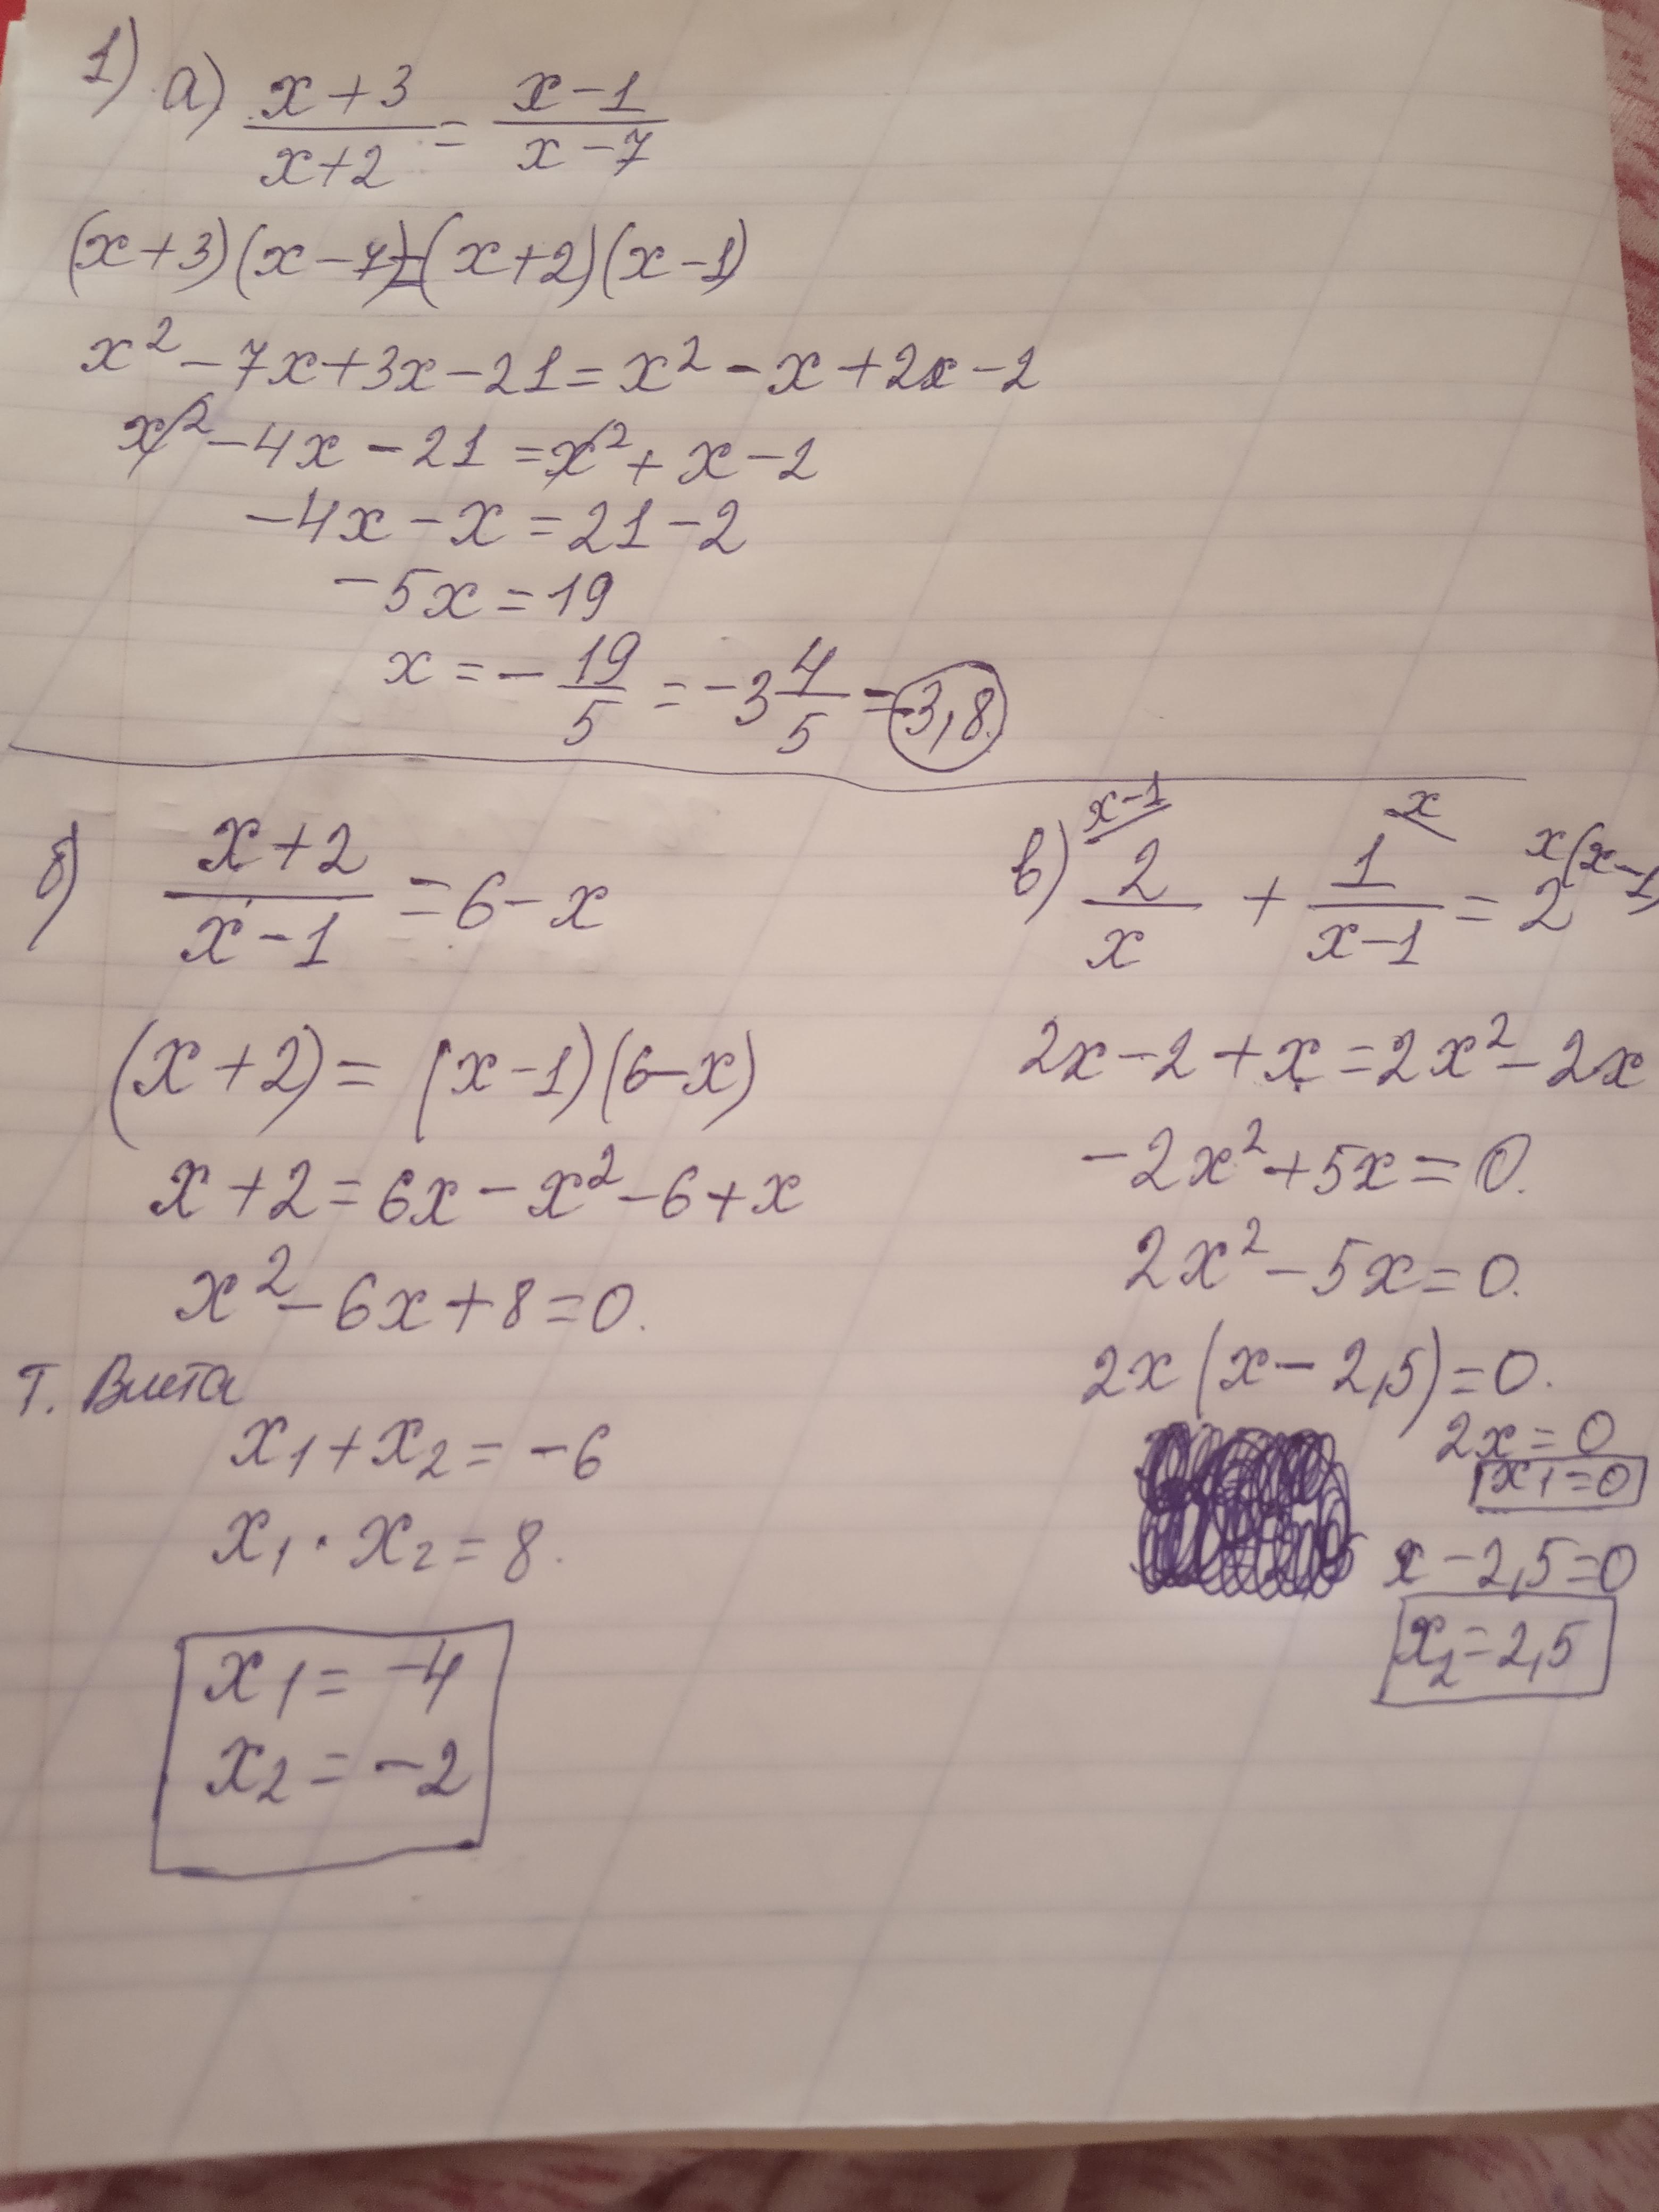 1) а) x+3/x+2 = x-1/x-7
(x+3)(x-7)=(x+2)(x-1)
x²-7x+3x-21=x²-x+2x-2
x²-4x-21=x²+x-2
-4x-x=21-2
-5x=19
x=-19/5=-3 4/5=-3,8.
б) x+2/x-1=6-x
(x+2)=(x-1)(6-x)
x+2=6x-x²-6+x
x²-6x+8=0.
Т. Виета
x₁+x₂=-6
x₁·x₂=8.
x₁=-4
x₂=-2
x-1 x x(x-1)
в) 2/x + 1/x-1 = 2
2x-2+x=2x²-2x
-2x²+5x=0.
2x²-5x=0.
2x(x-2,5)=0.
2x=0
x₁=0
x-2,5=0
x₂=2,5